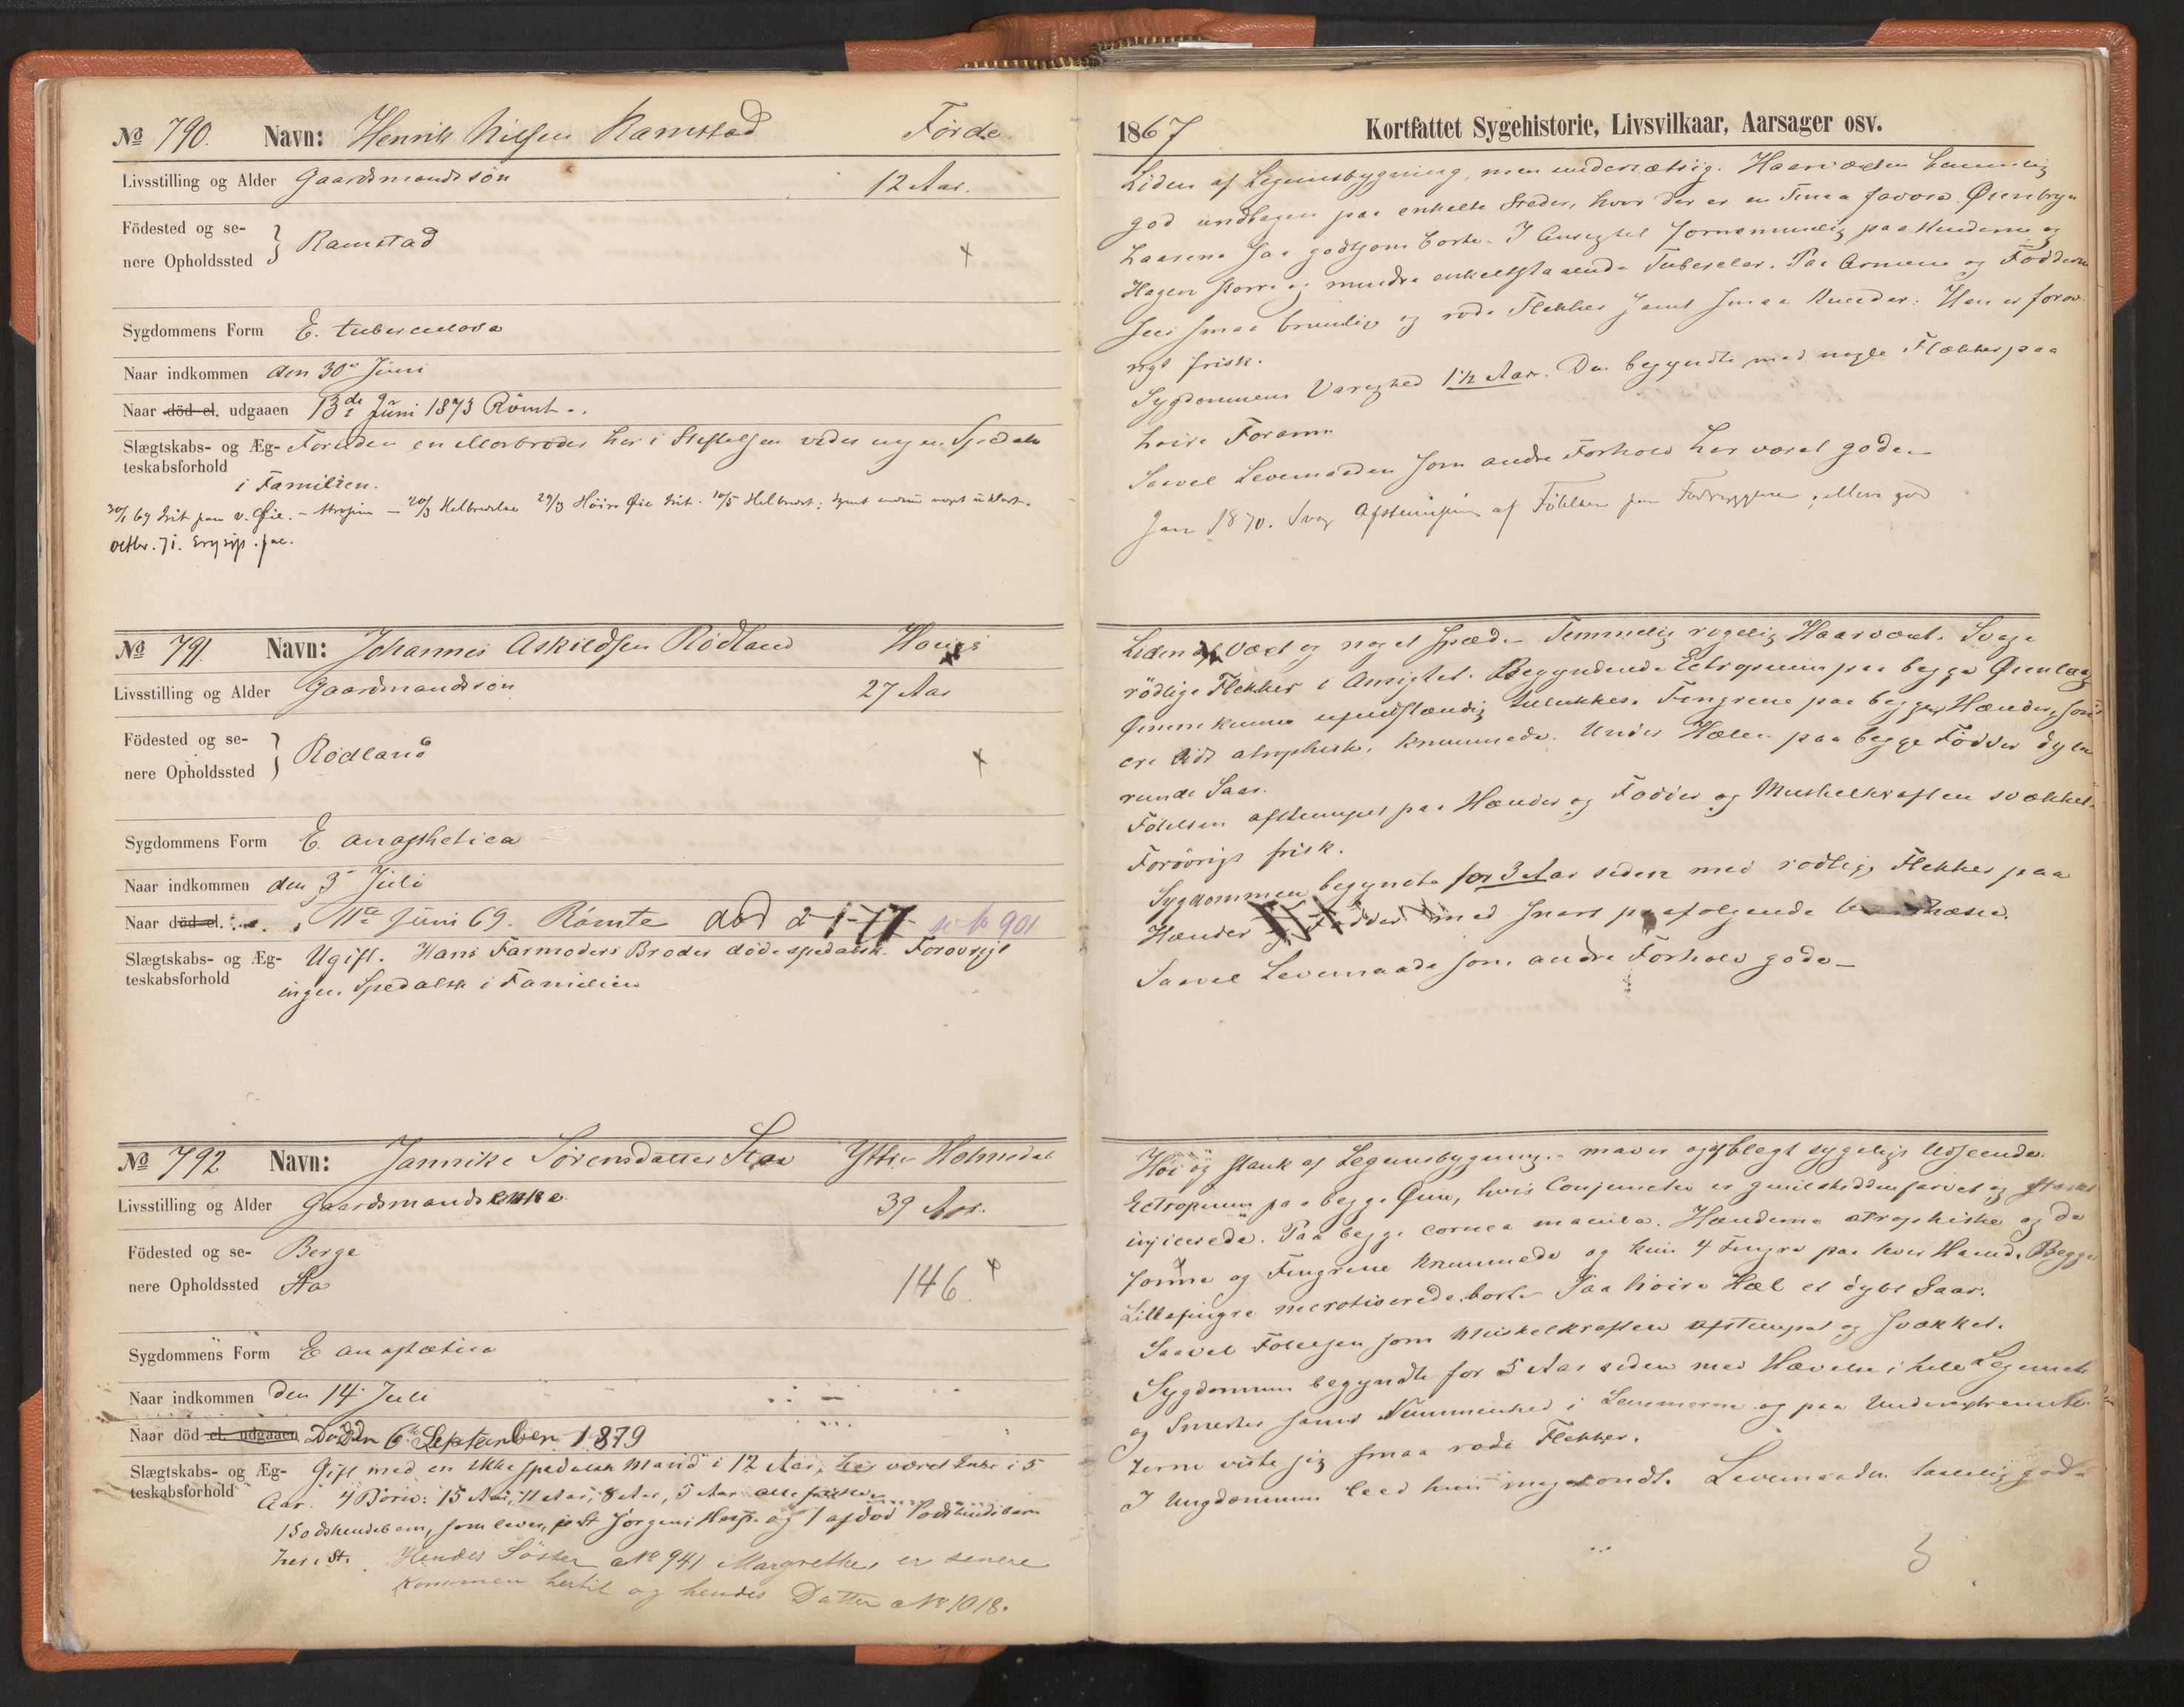 No 790. Navn: Henrik Nilsen Ramstad Förde.
Livsstilling og Alder Gaardmandssön 12 Aar.
Födested og senere Opholdssted } Ramstad
Sygdommens Form E. tuberculosa
Naar indkommen den 30te Juni
Naar död el. udgaaen 13de Juni 1873 Römt.
Slægtskabs- og Ægteskabsforhold Foruden en Morbroder her i Stiftelsen vides ingen Spedalsk
i Familien.
30/1 69 Irit paa v. Öie. - Atropin - 20/3 Helbredelse 29/3 Höire Öie Irit. 10/5 Helbredet; Synet endnu noget uklart.
octbr. 71. Erysip. fac.
No 791. Navn: Johannes Askildsen Rödland Houges
Livsstilling og Alder Gaardmandssön 27 Aar
Födested og senere Opholdssted } Rödland
Sygdommens Form E. anæsthetica
Naar indkommen den 3die Juli
Naar död el. 11te Juni 69. Römte död 2-1-77 se No 901
Slægtskabs- og Ægteskabsforhold Ugift. Hans Farmoders Broder döde spedalsk. Forövrigt
ingen Spedalsk i Familien
No 792 Navn: Jannike Sörensdatter Staa Yttre Holmedal
Livsstilling og Alder Gaardsmandsenke 39 Aar.
Födested og senere Opholdssted Berge
Sta 146
Sygdommens Form E anæstætica
Naar indkommen den 14. Juli
Naar död el. udgaaen Död Den 6te September 1879
Slægtskabs- og Ægteskabsforhold Gift med en ikke spedalsk Mand i 12 Aar, har været Enke i 5
Aar. 4 Börn: 15 Aar, 11 Aar, 8 Aar, 5 Aar alle friske.
1 Södskendebarn, som lever, p St Jörgens Hosp. og 1 afdöd Södskendebarn
her i St. Hendes Söster No 941 Margrethe, er senere
kommen hertil og hendes Datter No 1018.
1867 Kortfattet Sygehistorie, Livsvilkaar, Aarsager osv.
Liden af Legemsbygning, men undersætsig. Haarvæxten temmelig
god undtagen paa enkelte Steder, hvor der er en Smaa Öienbryn
haarene saa godtsom borte. I Ansigtet fornemmelig paa Kinderne og
Hagen större og mindre enkeltstaaende Tubercler. Paa Armene og Födderne
sees smaa brunlige og röde Flekker samt smaa Knuder. Han er foröv
rigt frisk.
Sygdommens Varighed 1½ Aar. Den begyndte med nogle Flekker paa
höire Forarm
Saavel Levemaaden som andre Forhold har været gode.
Jan 1870. Svag Afstumpning af Fölelsen paa Fodryggene, ellers god
Liden af Væxt og noget spæd. Temmelig rigelig Haarvæxt. Svage
rödlige Flekker i Ansigtet. Begyndende Ectropium paa begge Öienlaag
Öinene kunne ufuldstændig tillukkes. Fingrene paa begge Hænder, som
ere lidt atrophiske, krummede. Under Hælen paa begge Födder dybe
runde Saar.
Fölelsen afstumpet paa Hænder og Födder og Muskelkraften svækket.
Forövrigt frisk.
Sygdommen begyndte for 3 Aar siden med rödlige Flekker paa
Hænder og Födder med snart paafölgende
Saavel Levemaade som andre Forhold gode
Höi og slank af Legemsbygning. - maver og af blegt sygeligt Udseende.
Ectropium paa begge Öine, hvis Conjunctiva er og stærkt
injicerede. Paa begge cornea macula. Hænderne atrophiske og de
og Fingrene krummede og kun 4 Fingre paa hver Haand. Begge
Lillefingre necrotiserede bort. Paa höire Hæl et dybt Saar.
Saavel Fölelsen som Muskelkraften afstumpet og svækket.
Sygdommen begyndte for 5 Aar siden med Hævelse i hele Legemet
og Smerter samt Nummenhed i Lemmerne og paa Underextremite
terne viste sig smaa röde Flekker.
I Ungdommen leed hun meget ondt. Levemaaden taalelig god